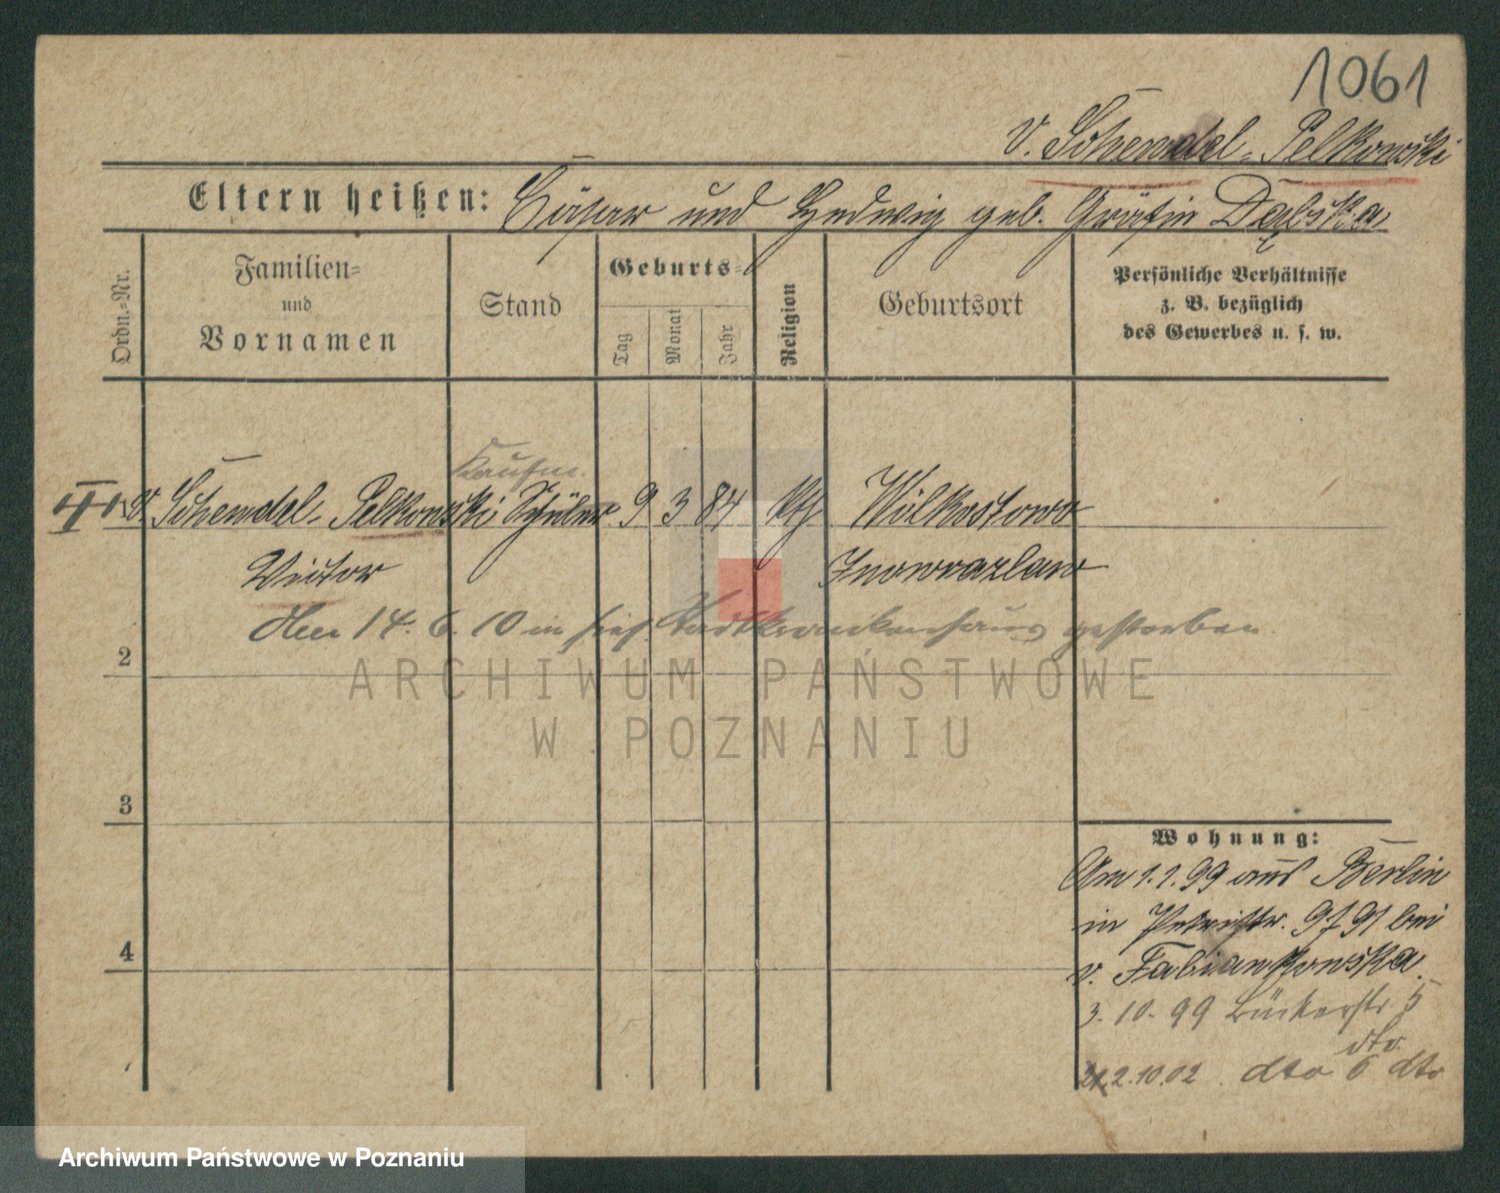 1061
v. Schendel-Pelkowski
Eltern heißen: Cäsar und Hedwig geb. Gräfin Dąbska
Ordn.-Nr.
Familien-
und
Vornamen
Stand
Geburts-
Tag
Monat
Jahr
Religion
Geburtsort
Persönliche Verhältnisse
z. B. bezüglich
des Gewerbes u. s. w.
Kaufm.
v. Schendel-Pelkowski Schüler 9 3 84 kth Wilkostowo
Victor Inowrazlaw
14. 6. 10 in hies. Stadtkrankenhaus gestorben.
2
ARCHIWUM PAŃSTWOWE
W POZNANIU
3
Wohnung:
Am 1.1.99 aus Berlin
in Petristr. bei
v. Fabiankowska
4
3. 10. 99 Bückerstr. 5
dto
2.10.02 dto 6 dto
Archiwum Państwowe w Poznaniu